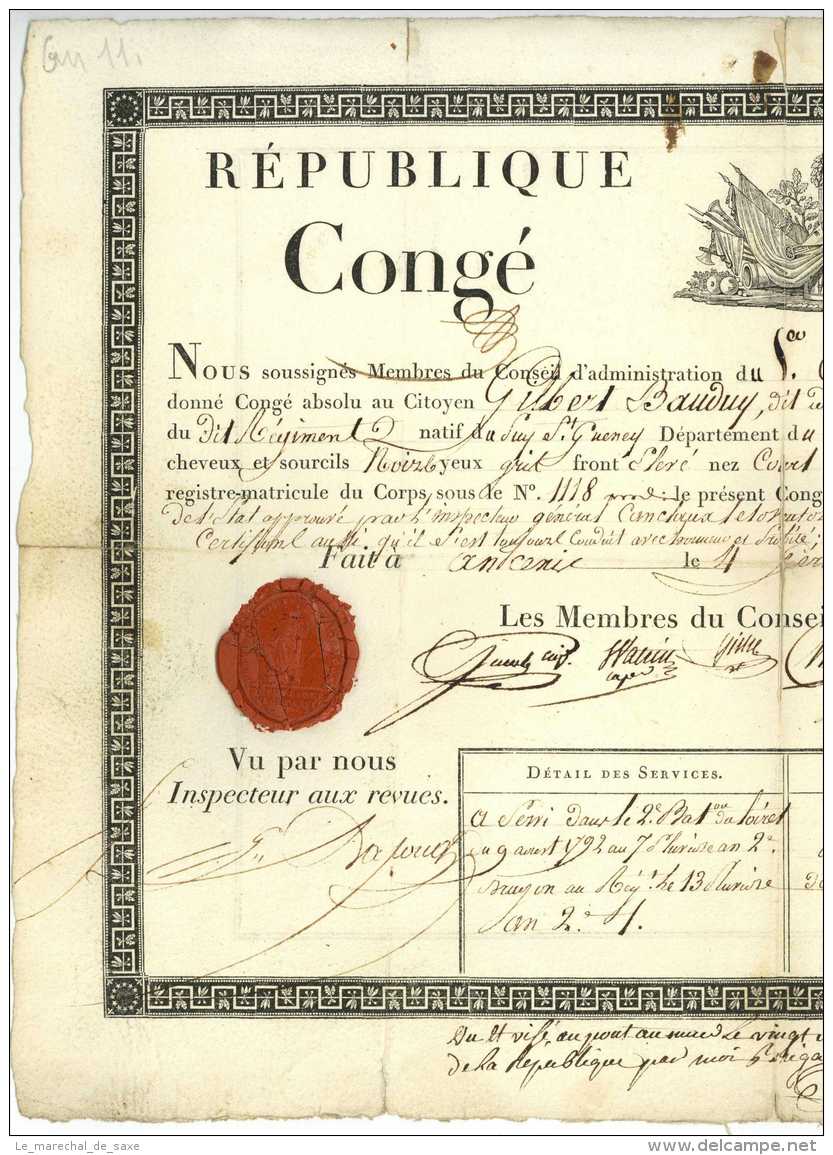 an 11.
RÉPUBLIQUE
Congé
Nous soussignés Membres du Conseil d'administration du 1.er
donné Congé absolu au Citoyen Gilbert Bauduy, dit
du Dit Régiment natif du Puy St Gueney Département du
cheveux et sourcils Noirs yeux gris front Éleré nez Court
registre-matricule du Corps sous le No. 1118 le présent Cong
De l'État approuvé par l'inspecteur général
Certifiant aussi qu'il s'est toujours Conduit avec honneur et Probité
Fait à ancenis le 4
Les Membres du Consei
Vu par nous
Inspecteur aux revues.
DÉTAIL DES SERVICES.
A Servi Dans le 2.e Bat.on du Loiret
du 9 aoust 1792 au 7 Pluviose an 2.e
Dragon au Rég.t le 13 Pluviose
an 2.e
Vu et visé au pont au mur le vingt
de la Republique par moi
Le_marechal_de_saxe
www.delcampe.net